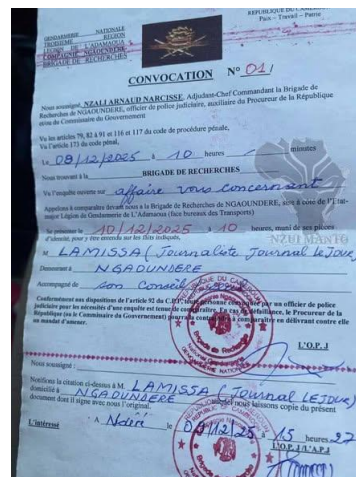 GENDARMERIE NATIONALE
TROISIEME REGION
LEGION DE L'ADAMAOUA
COMPAGNIE NGAOUNDERE
BRIGADE DE RECHERCHES
REPUBLIQUE DU CAMEROUN
Paix – Travail – Patrie
CONVOCATION N° 01/
Nous soussigné, NZALI ARNAUD NARCISSE, Adjudant-Chef Commandant la Brigade de
Recherches de NGAOUNDERE, officier de police judiciaire, auxiliaire du Procureur de la République
et/ou du Commissaire du Gouvernement
Vu les articles 79, 82 à 91 et 116 et 117 du code de procédure pénale,
Vu l'article 173 du code pénal,
Le 08/12/2025 à 10 heures minutes
Nous trouvant à la BRIGADE DE RECHERCHES
Vu l'enquête ouverte sur affaire vous concernant
à comparaître devant nous à la Brigade de Recherches de NGAOUNDERE, sise à côté de l'Etat-
major Légion de Gendarmerie de L'Adamaoua (face bureaux des Transports)
Se présenter le 10/12/2025 à 10 heures, muni de ses pièces
d'identité, pour y être entendu sur les faits indiqués,
NZUI MANTO
M LAMISSA (Journaliste Journal LE JOUR)
Demeurant à NGAOUNDERE
Accompagné de son Conseil
Conformément aux dispositions de l'article 92 du C.P.P. toute personne convoquée par un officier de police
judiciaire pour les nécessités d'une enquête est tenue de comparaître. En cas de défaillance, le Procureur de la
République (ou le Commissaire du Gouvernement) pourra la contraindre à comparaître en délivrant contre elle
un mandat d'amener.
L'O.P.J
Nous soussigné :
Notifions la citation ci-dessus à M. LAMISSA (Journal LE JOUR)
domicilié à NGAOUNDERE auquel nous laissons copie du présent
document dont il signe avec nous l'original.
L'intéressé A Ndéré le 08/12/25 à 15 heures 27
L'O.P.J/L'A.P.J